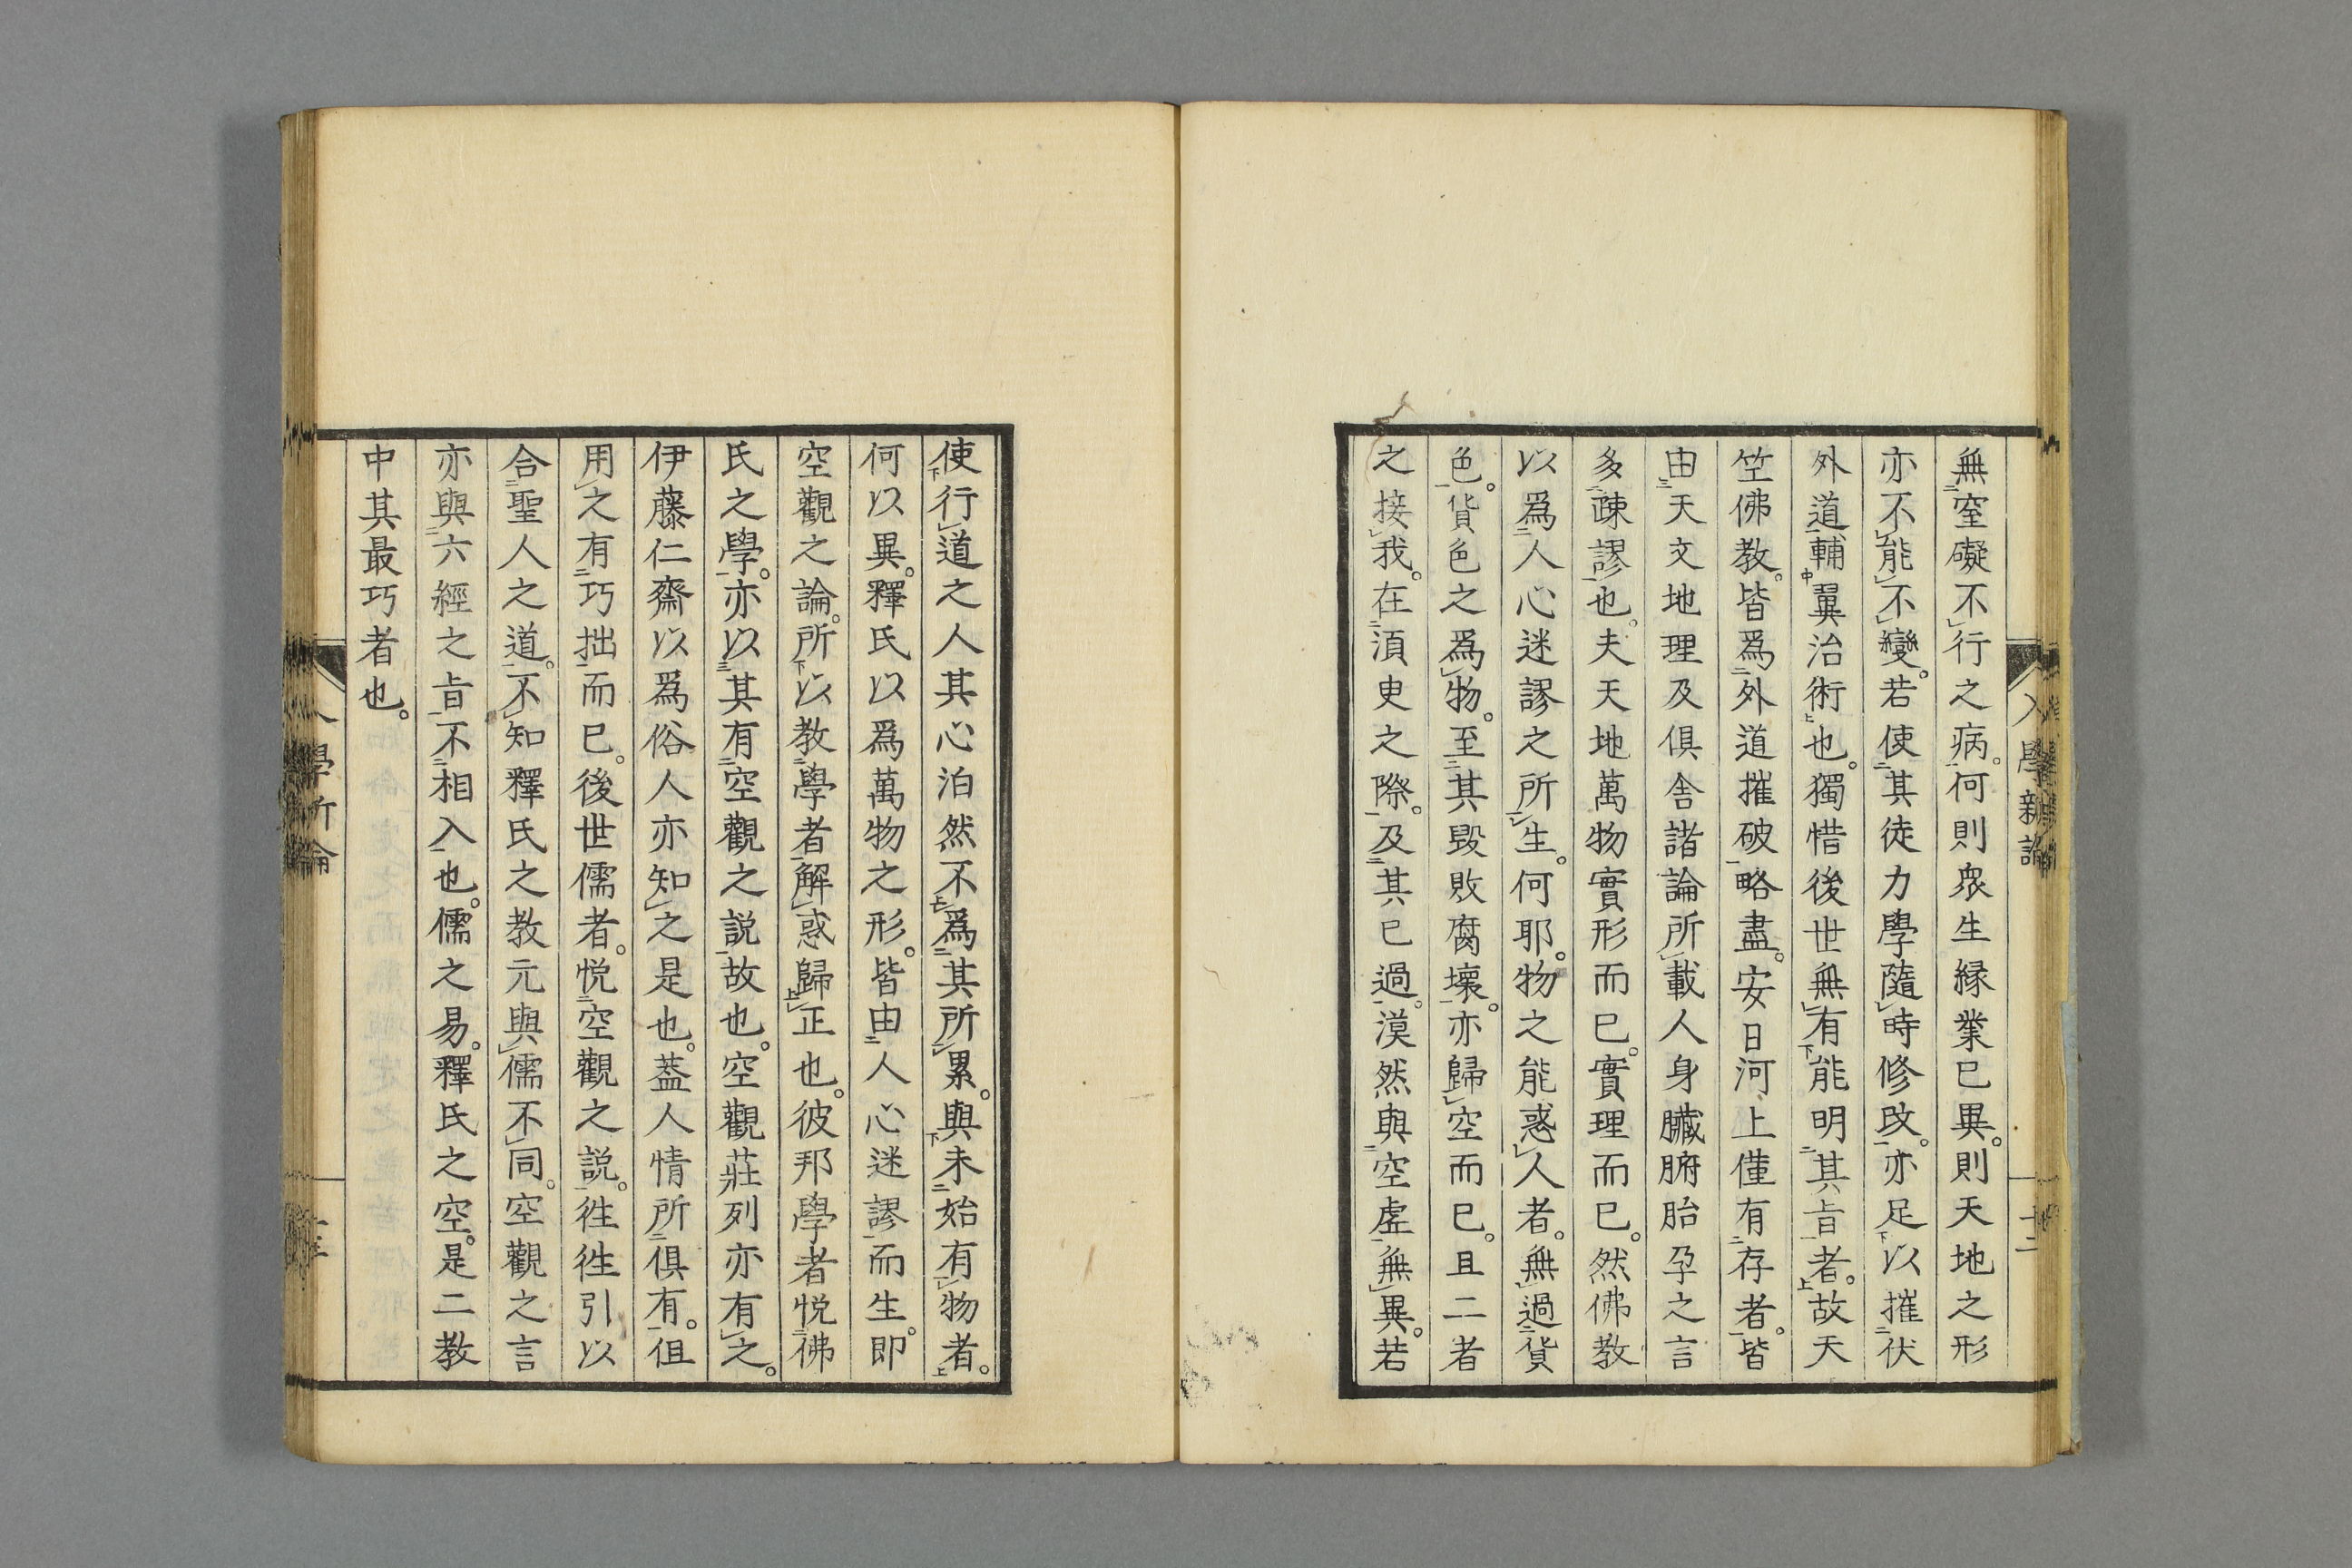 無窒礙不行之病。何則衆生縁業已異。則天地之形
亦不能不變。若使其徒力學隨時修改。亦足以摧伏
外道輔翼治術也。獨惜後世無有能明其旨者。故天
竺佛教。皆爲外道摧破略盡。安日河上僅有存者。皆
由天文地理及俱舎諸論所載人身臟腑胎孕之言
多疎謬也。夫天地萬物實形而已。實理而已。然佛教
以爲人心迷謬之所生。何耶。物之能惑人者。無過貨
色。貨色之爲物。至其毀敗腐壊。亦歸空而已。且二者
之接我。在須臾之際。及其已過。漠然與空虚無異。若
入學新論
十二
使行道之人其心泊然不爲其所累。與未始有物者。
何以異。釋氏以爲萬物之形。皆由人心迷謬而生。即
空觀之論。所以教學者解惑歸正也。彼邦學者悦佛
氏之學。亦以其有空觀之説故也。空觀莊列亦有之。
伊藤仁齋以爲俗人亦知之是也。葢人情所俱有。但
用之有巧拙而已。後世儒者。悦空觀之説。徃徃引以
合聖人之道。不知釋氏之教元與儒不同。空觀之言
亦與六經之旨不相入也。儒之易。釋氏之空。是二教
中其最巧者也。